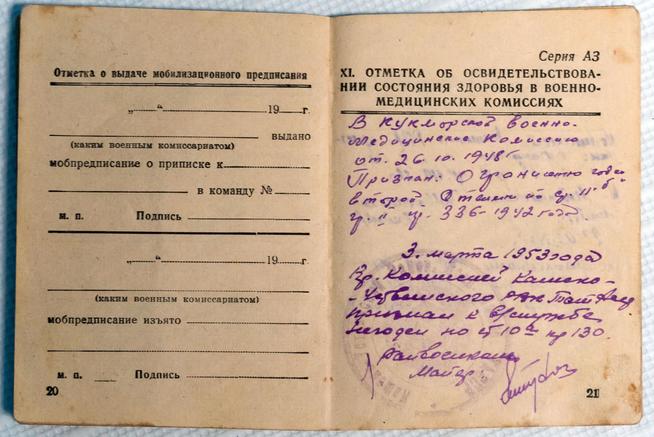 Отметка о выдаче мобилизационного предписания
„ “ 19 г.
выдано
(каким военным комиссариатом)
мобпредписание о приписке к
в команду №
м. п. Подпись
„ “ 19 г.
(каким военным комиссариатом)
мобпредписание изъято
м. п. Подпись
20
Серия АЗ
XI. ОТМЕТКА ОБ ОСВИДЕТЕЛЬСТВОВА-
НИИ СОСТОЯНИЯ ЗДОРОВЬЯ В ВОЕННО-
МЕДИЦИНСКИХ КОМИССИЯХ
В Кукморской Военно-
Медицинские Комиссию
от. 26. 10. 1948
Признан. Ограниченно годен
второй. Степени по
336-1942 года
3. марта 1953 года
Гр. Комиссией Камско-
-Устьинского
признан к в/службе
негоден по ст 10а пр 130.
Райвоенком
Майор:
21